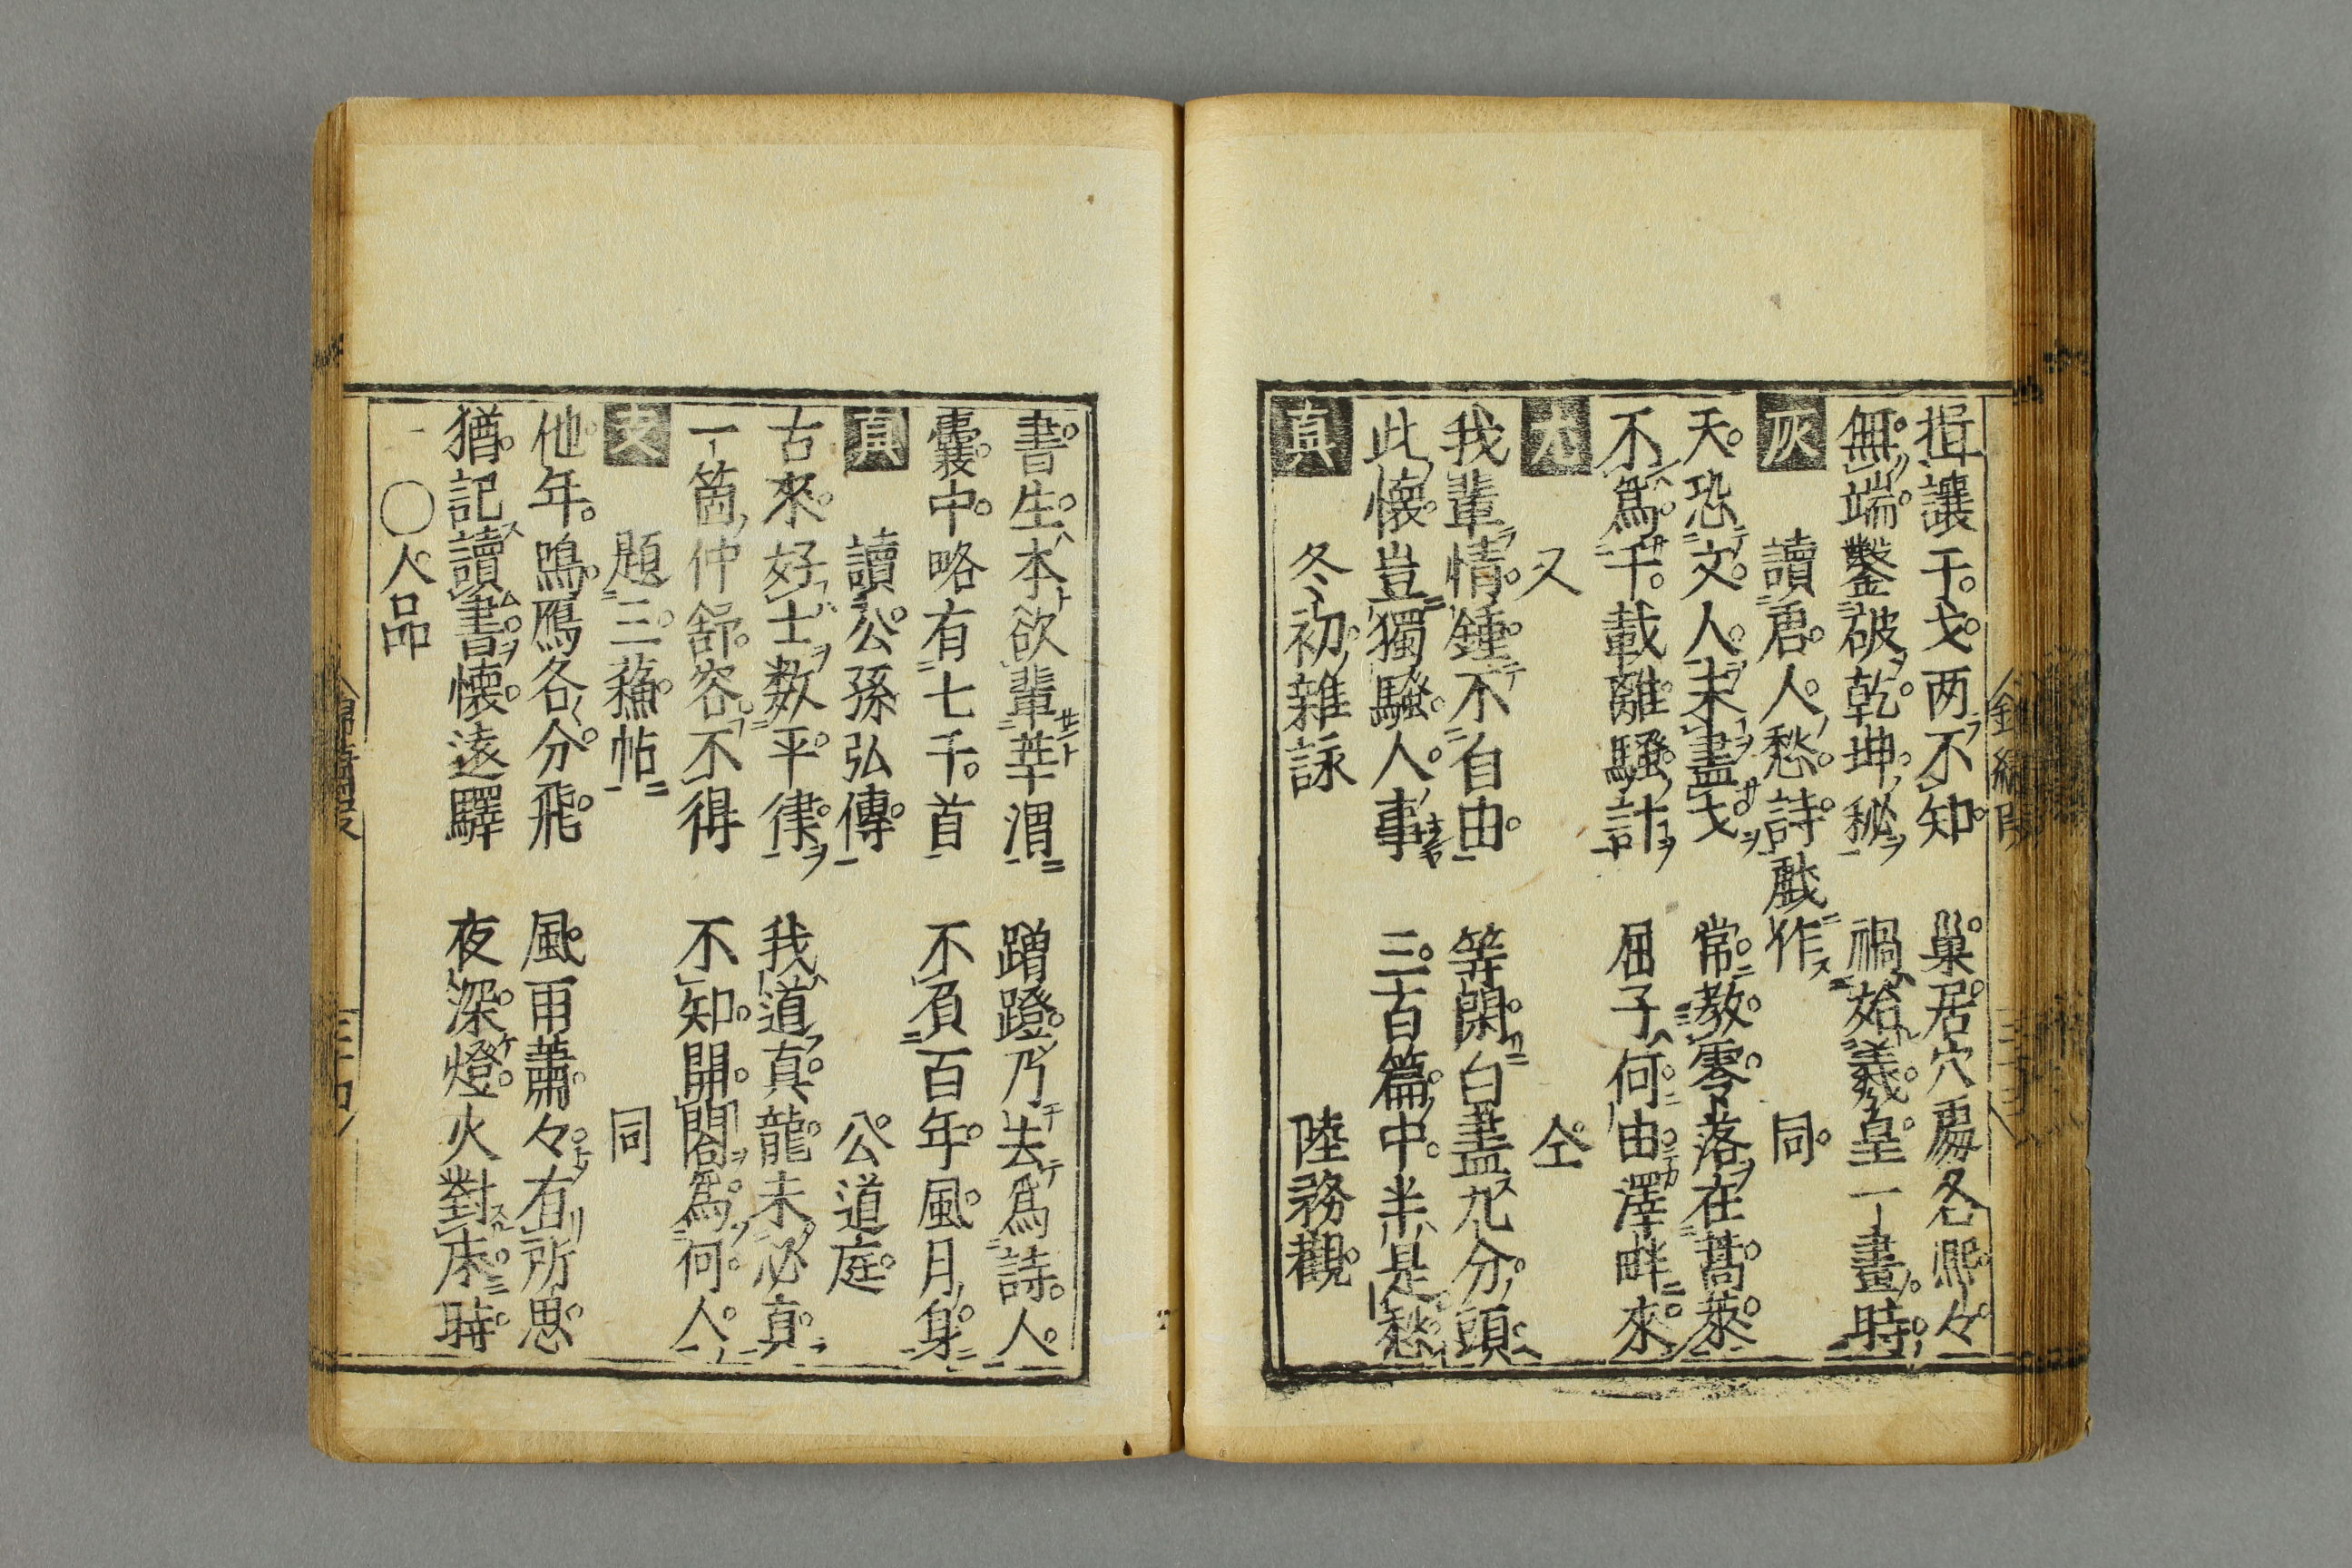 揖讓干戈両不知　巣居穴處各熈々
無端鑿破乾坤秘　禍始羲皇一畫時
灰　讀唐人愁詩戯作　同
天恐文人未盡才　常教零落在蒿萊
不爲千載離騷計　屈子何由澤畔來
尤　又　仝
我輩情鍾不自由　等閑白盡九分頭
此懷豈獨騷人事　三百篇中半是愁
真　冬初雑詠　陸務觀
書生本欲輩莘渭　蹭蹬乃去爲詩人
囊中略有七千首　不負百年風月身
真　讀公孫弘傳　公道庭
古來好士数平律　我道真龍未必真
一箇仲舒容不得　不知開閤爲何人
支　題三蘓帖　同
他年鳴鴈各分飛　風雨蕭々有所思
猶記讀書懷遠驛　夜深燈火對床時
○人品